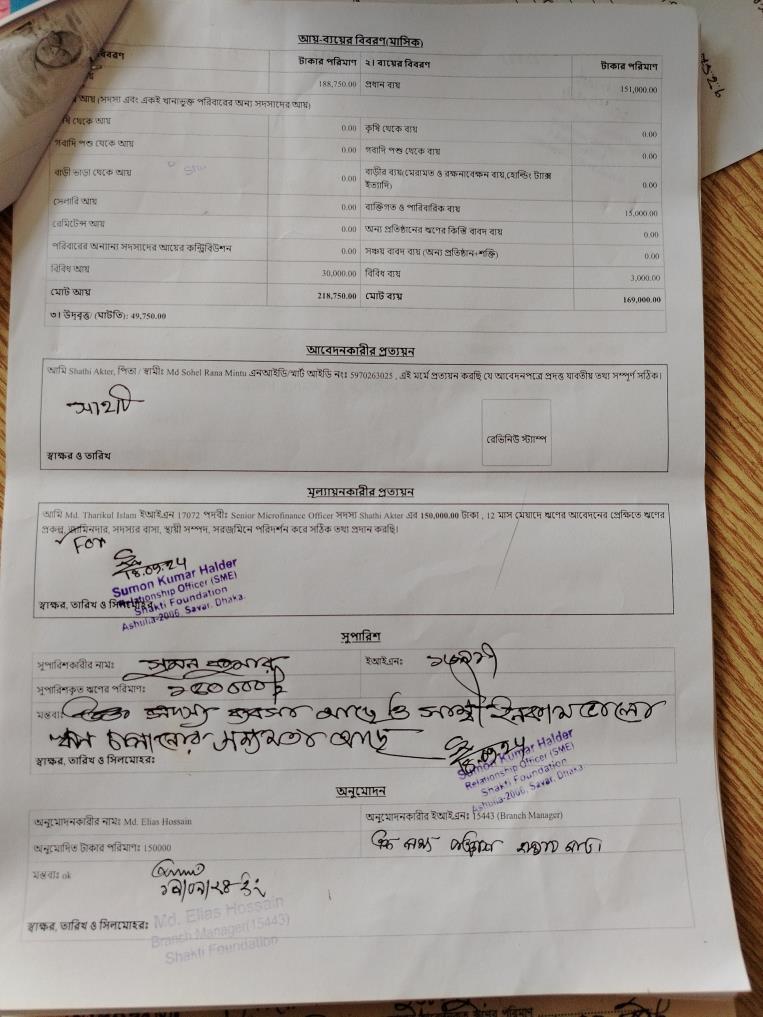 আয়-ব্যয়ের বিবরণ(মাসিক)
বিবরণ টাকার পরিমাণ ২। ব্যয়ের বিবরণ টাকার পরিমাণ
188,750.00 প্রধান ব্যয় 151,000.00
আয় (সদস্য এবং একই খানাভুক্ত পরিবারের অন্য সদস্যদের আয়)
থেকে আয় 0.00 কৃষি থেকে ব্যয় 0.00
গবাদি পশু থেকে আয় 0.00 গবাদি পশু থেকে ব্যয় 0.00
বাড়ী ভাড়া থেকে আয় 0.00 বাড়ীর ব্যয়(মেরামত ও রক্ষনাবেক্ষন ব্যয়,হোল্ডিং ট্যাক্স
ইত্যাদি) 0.00
সেলারি আয় 0.00 ব্যক্তিগত ও পারিবারিক ব্যয় 15,000.00
রেমিটেন্স আয় 0.00 অন্য প্রতিষ্ঠানের ঋণের কিস্তি বাবদ ব্যয় 0.00
পরিবারের অন্যান্য সদস্যদের আয়ের কন্ট্রিবিউশন 0.00 সঞ্চয় বাবদ ব্যয় (অন্য প্রতিষ্ঠান+শক্তি) 0.00
বিবিধ আয় 30,000.00 বিবিধ ব্যয় 3,000.00
মোট আয় 218,750.00 মোট ব্যয় 169,000.00
৩। উদবৃত্ত/ (ঘাটতি): 49,750.00
আবেদনকারীর প্রত্যয়ন
আমি Shathi Akter, পিতা / স্বামীঃ Md Sohel Rana Mintu এনআইডি/স্মার্ট আইডি নংঃ 5970263025 , এই মর্মে প্রত্যয়ন করছি যে আবেদনপত্রে প্রদত্ত যাবতীয় তথ্য সম্পূর্ণ সঠিক।
সাথী
রেভিনিউ স্ট্যাম্প
স্বাক্ষর ও তারিখ
মূল্যায়নকারীর প্রত্যয়ন
আমি Md. Tharikul Islam ইআইএন 17072 পদবীঃ Senior Microfinance Officer সদস্য Shathi Akter এর 150,000.00 টাকা , 12 মাস মেয়াদে ঋণের আবেদনের প্রেক্ষিতে ঋণের
প্রকল্প, জামিনদার, সদস্যর বাসা, স্থায়ী সম্পদ, সরজমিনে পরিদর্শন করে সঠিক তথ্য প্রদান করছি।
For
18.09.24
Sumon Kumar Halder
Relationship Officer (SME)
Shakti Foundation
Ashulia-2006, Savar, Dhaka.
স্বাক্ষর, তারিখ ও সিলমোহরঃ
সুপারিশ
সুপারিশকারীর নামঃ সুমন কুমার ইআইএনঃ
সুপারিশকৃত ঋণের পরিমাণঃ ১৫০০০০
মন্তব্যঃ সদস্য ব্যবসা আছে ও
ঋন চালানোর সক্ষমতা আছে
18.09.24
Sumon Kumar Halder
Relationship Officer (SME)
Shakti Foundation
Ashulia-2006, Savar, Dhaka.
স্বাক্ষর, তারিখ ও সিলমোহরঃ
অনুমোদন
অনুমোদনকারীর নামঃ Md. Elias Hossain অনুমোদনকারীর ইআইএনঃ 15443 (Branch Manager)
অনুমোদিত টাকার পরিমাণঃ 150000
মন্তব্যঃ ok
স্বাক্ষর, তারিখ ও সিলমোহরঃ
Md. Elias Hossain
Branch Manager(15443)
Shakti Foundation